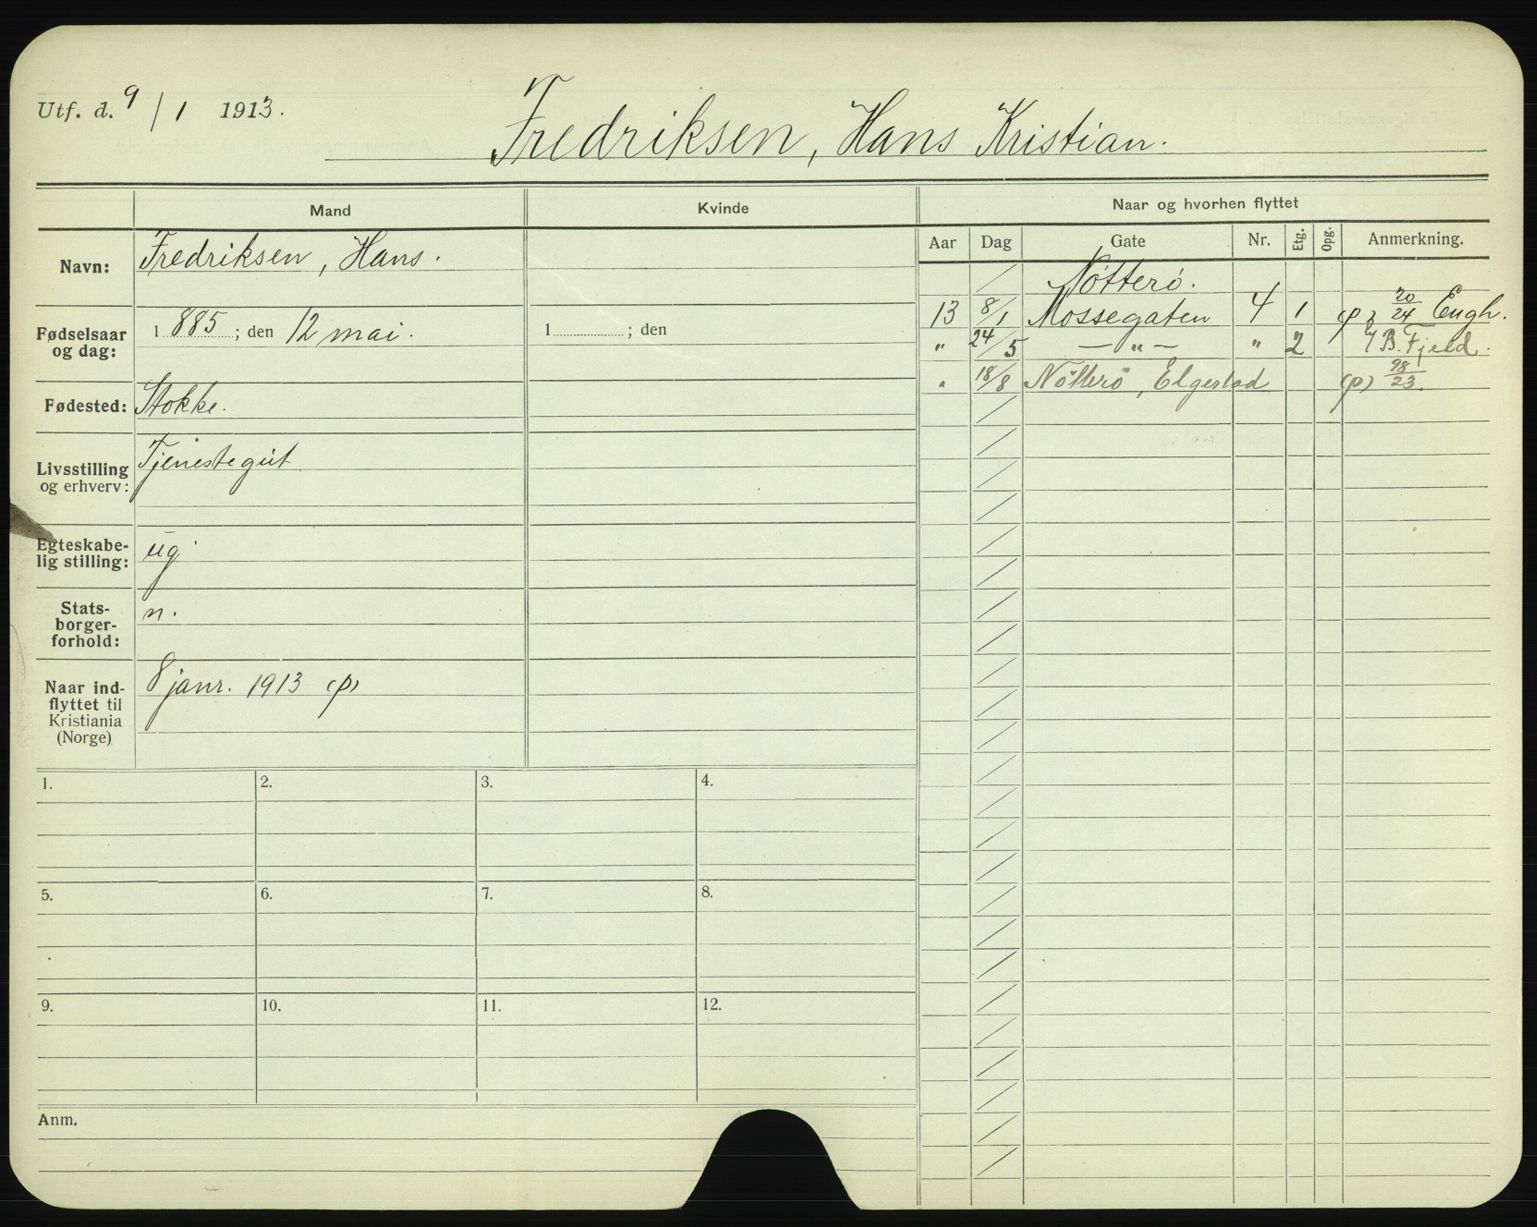 Utf. d. 9/1 1913.
Fredriksen, Hans Kristian.
Mand
Kvinde
Navn: Fredriksen, Hans.
Fødselsaar og dag: 1885; den 12 mai. 1 ; den
Fødested: Stokke.
Livsstilling og erhverv: Tjenestegut
Egteskabe-
lig stilling: ug.
Stats-
borger-
forhold: n.
Naar ind-
flyttet til
Kristiania
(Norge) 8 janr. 1913 (p)
1. 2. 3. 4.
5. 6. 7. 8.
9. 10. 11. 12.
Anm.
Naar og hvorhen flyttet
Aar Dag Gate Nr. Etg. Opg. Anmerkning.
Nötterö.
13 8/1 Mossegaten 4 1 (p) 20/24 Engh.
" 24/5 — " — " 2 B. Fjeld.
" 18/8 Nötterö, Elgestad (p) 98/23.